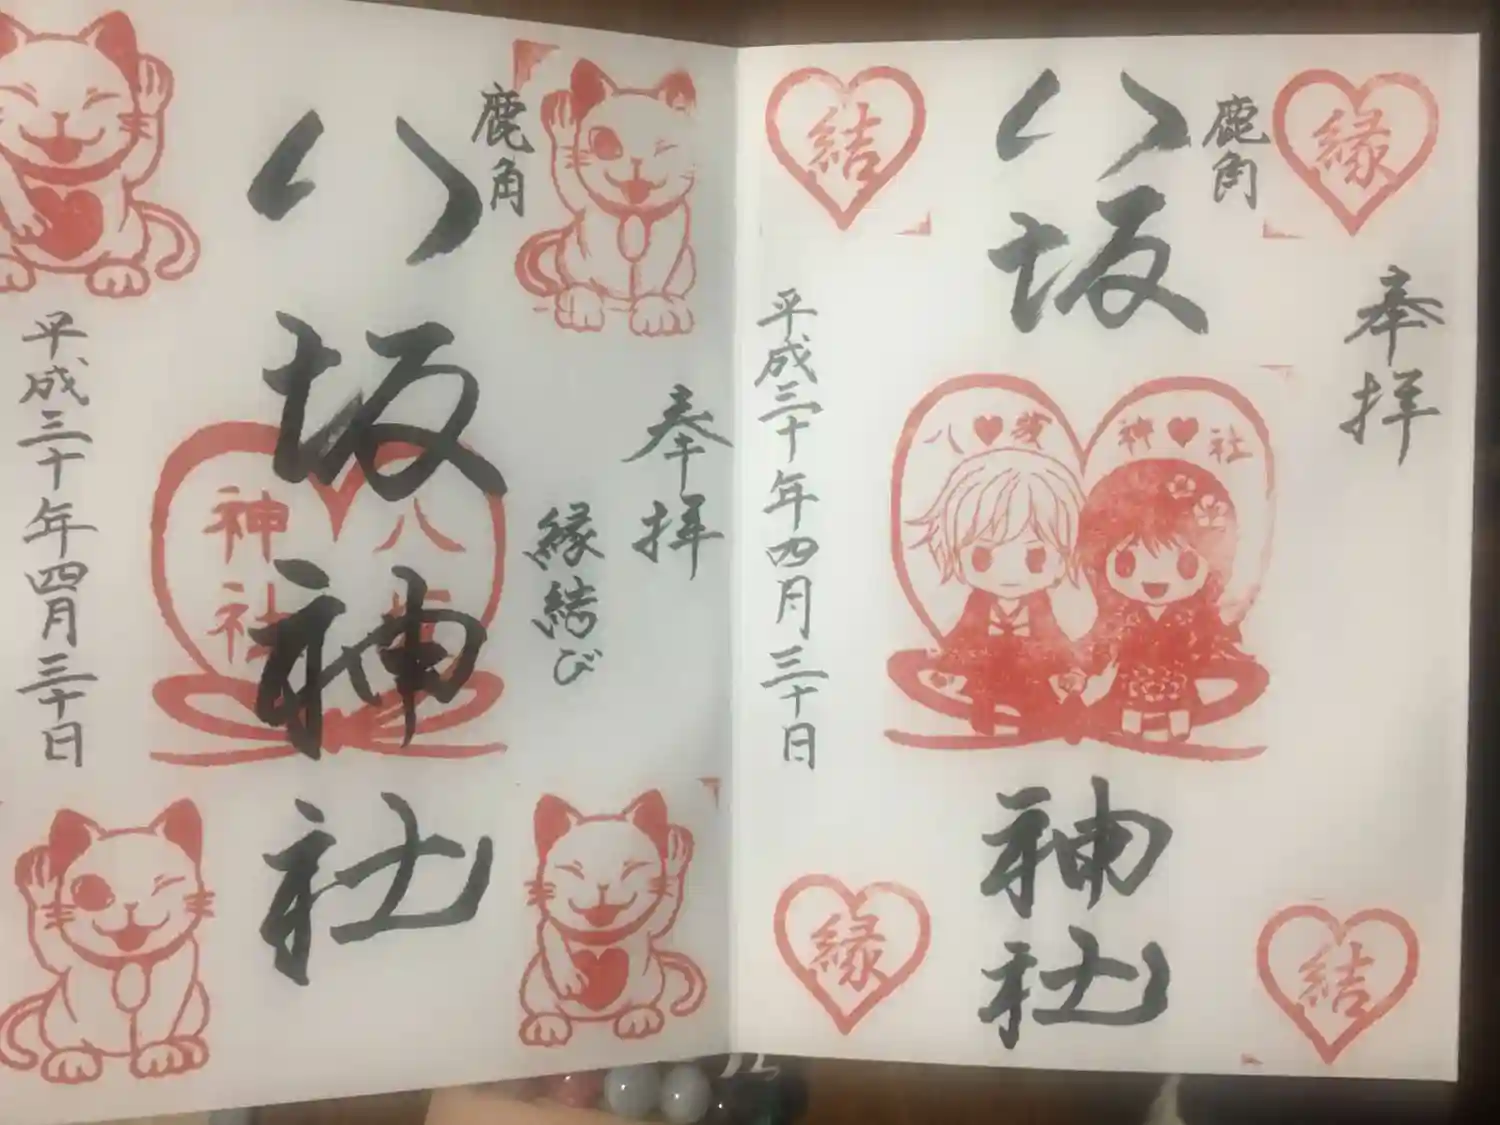 縁
奉拝
鹿角
八坂神社
八坂
神社
結
平成三十年四月三十日
縁
結
奉拝
縁結び
鹿角
八坂神社
八
神社
平成三十年四月三十日